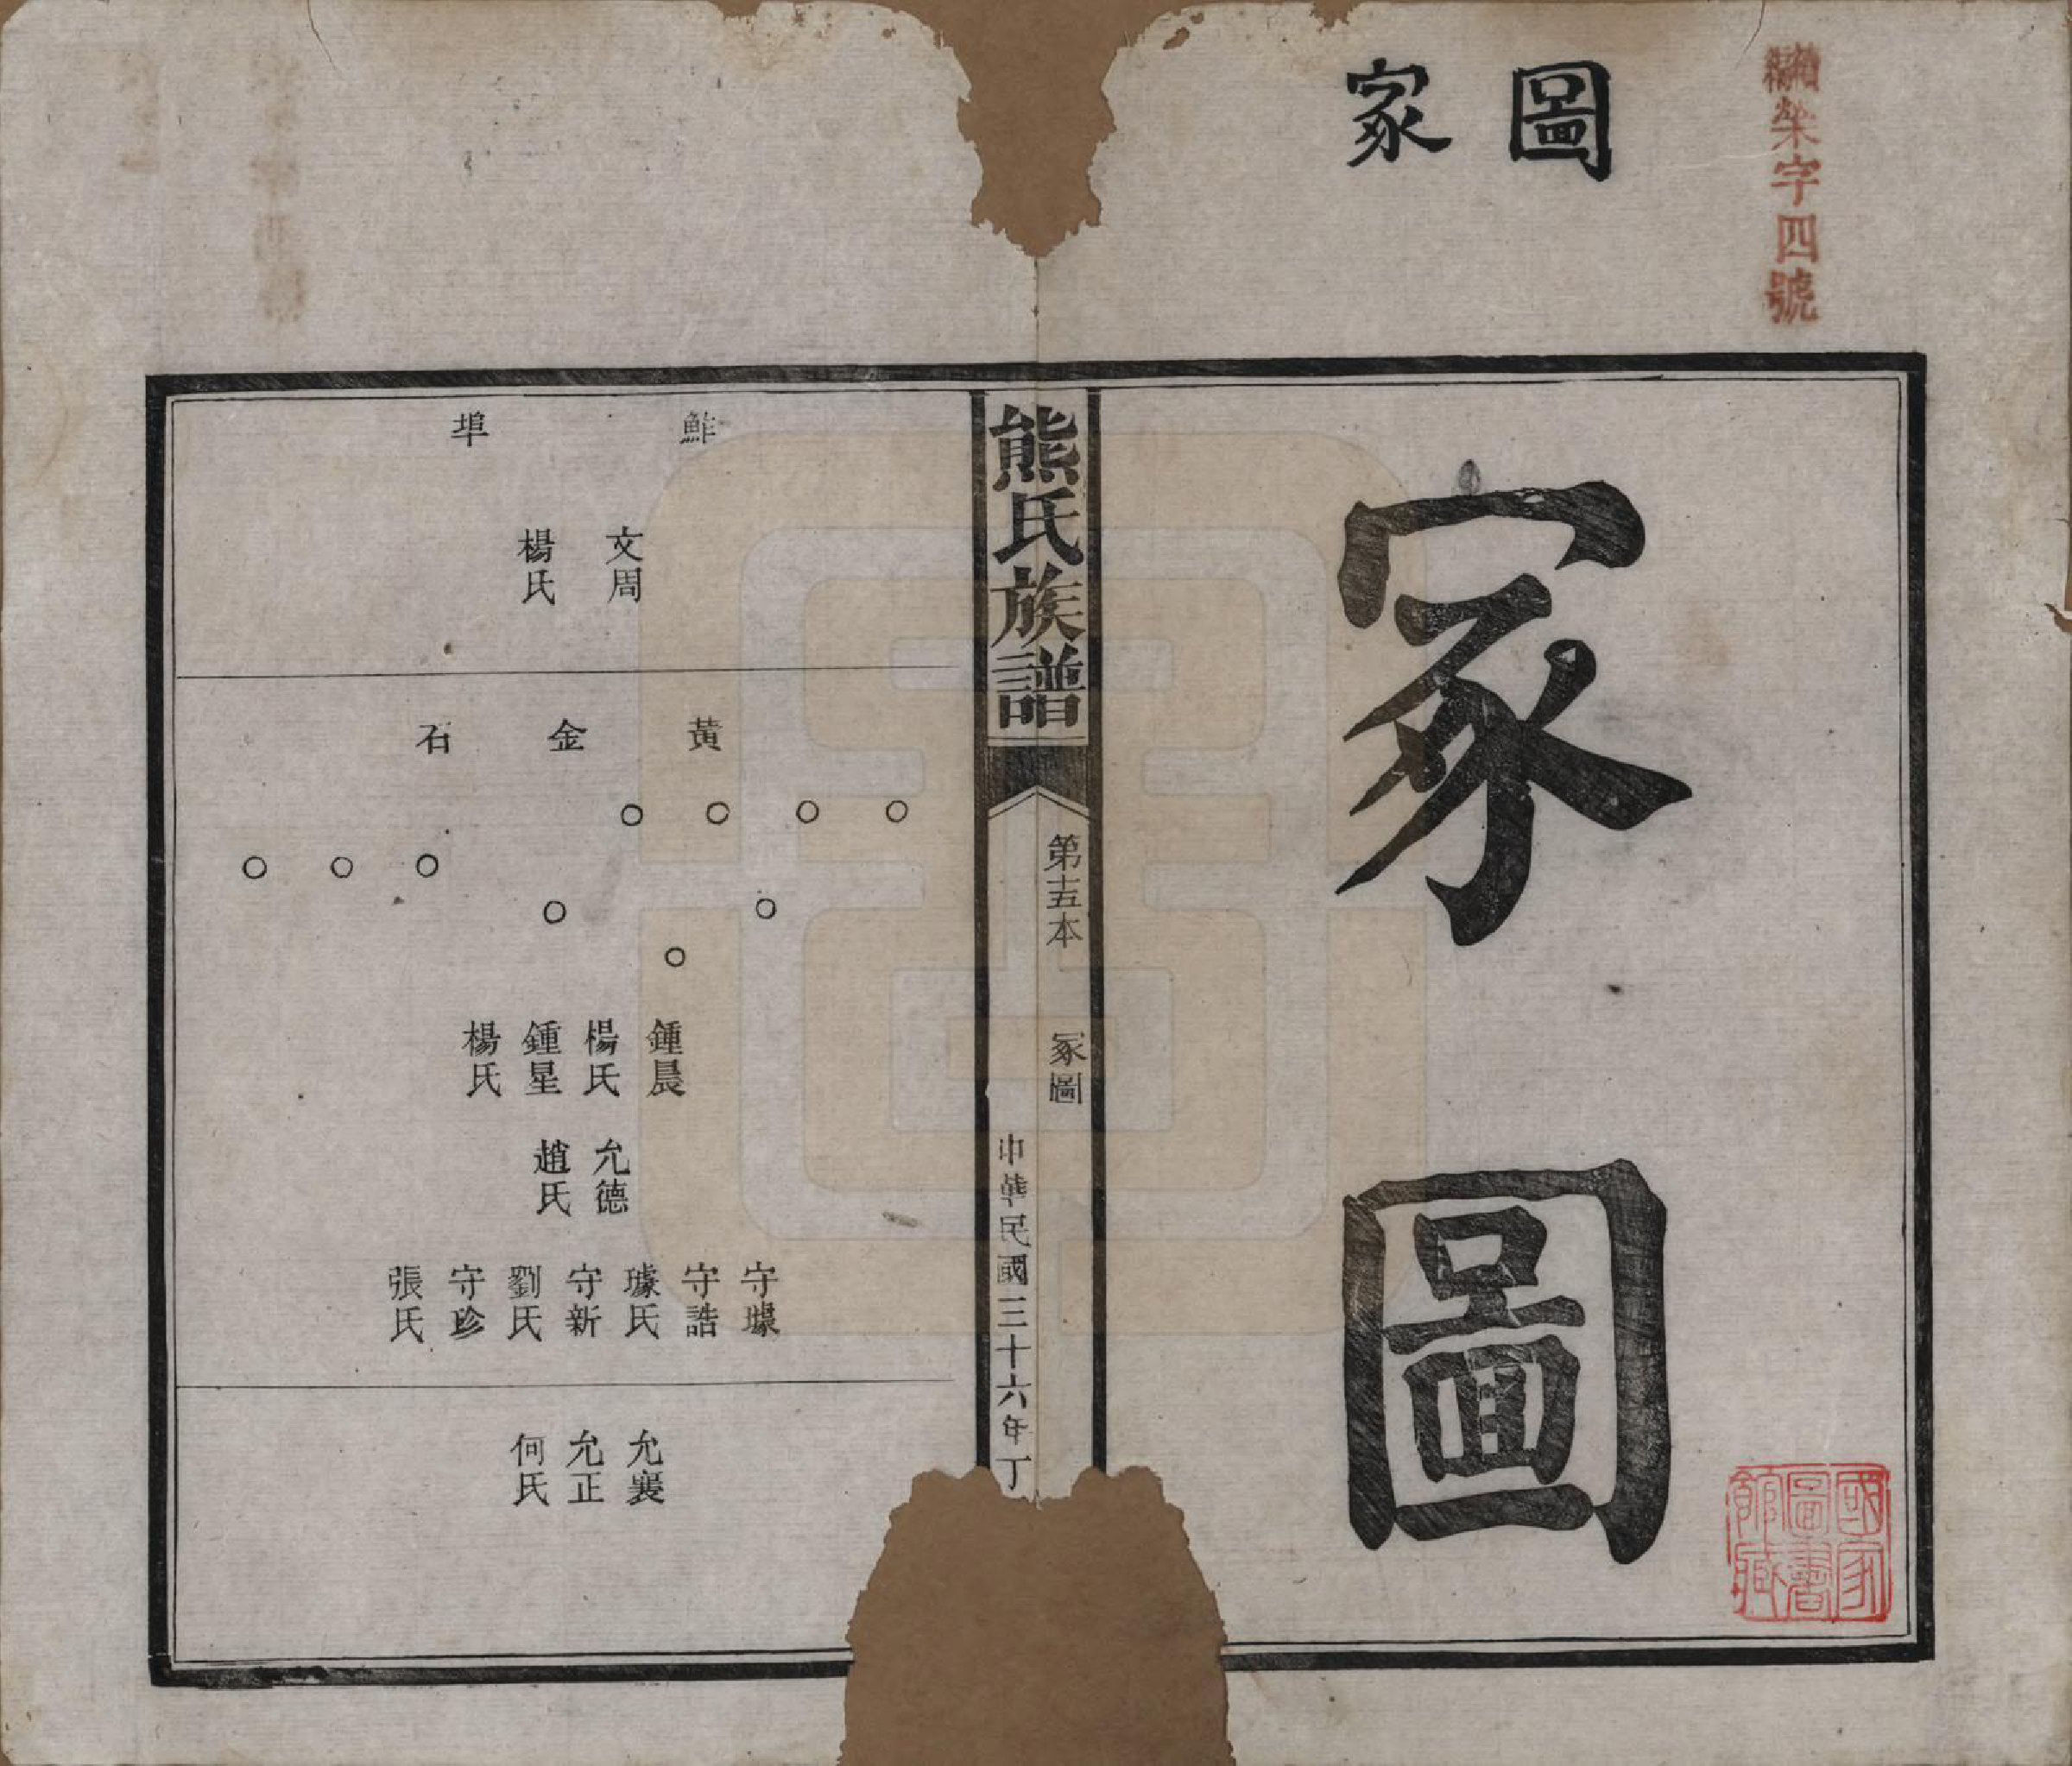 冢圖
榮字四號
冢圖
國家
圖書
館藏
熊氏族譜
第十五本
冢圖
中華民國三十六年丁
鮓埠
文周
楊氏
黃金石
鍾晨
楊氏
鍾星
楊氏
允德
趙氏
守璩
守誥
璩氏
守新
劉氏
守珍
張氏
允襄
允正
何氏